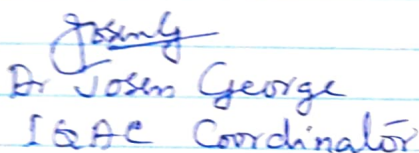 Dr Josen George
IQAC Coordinator